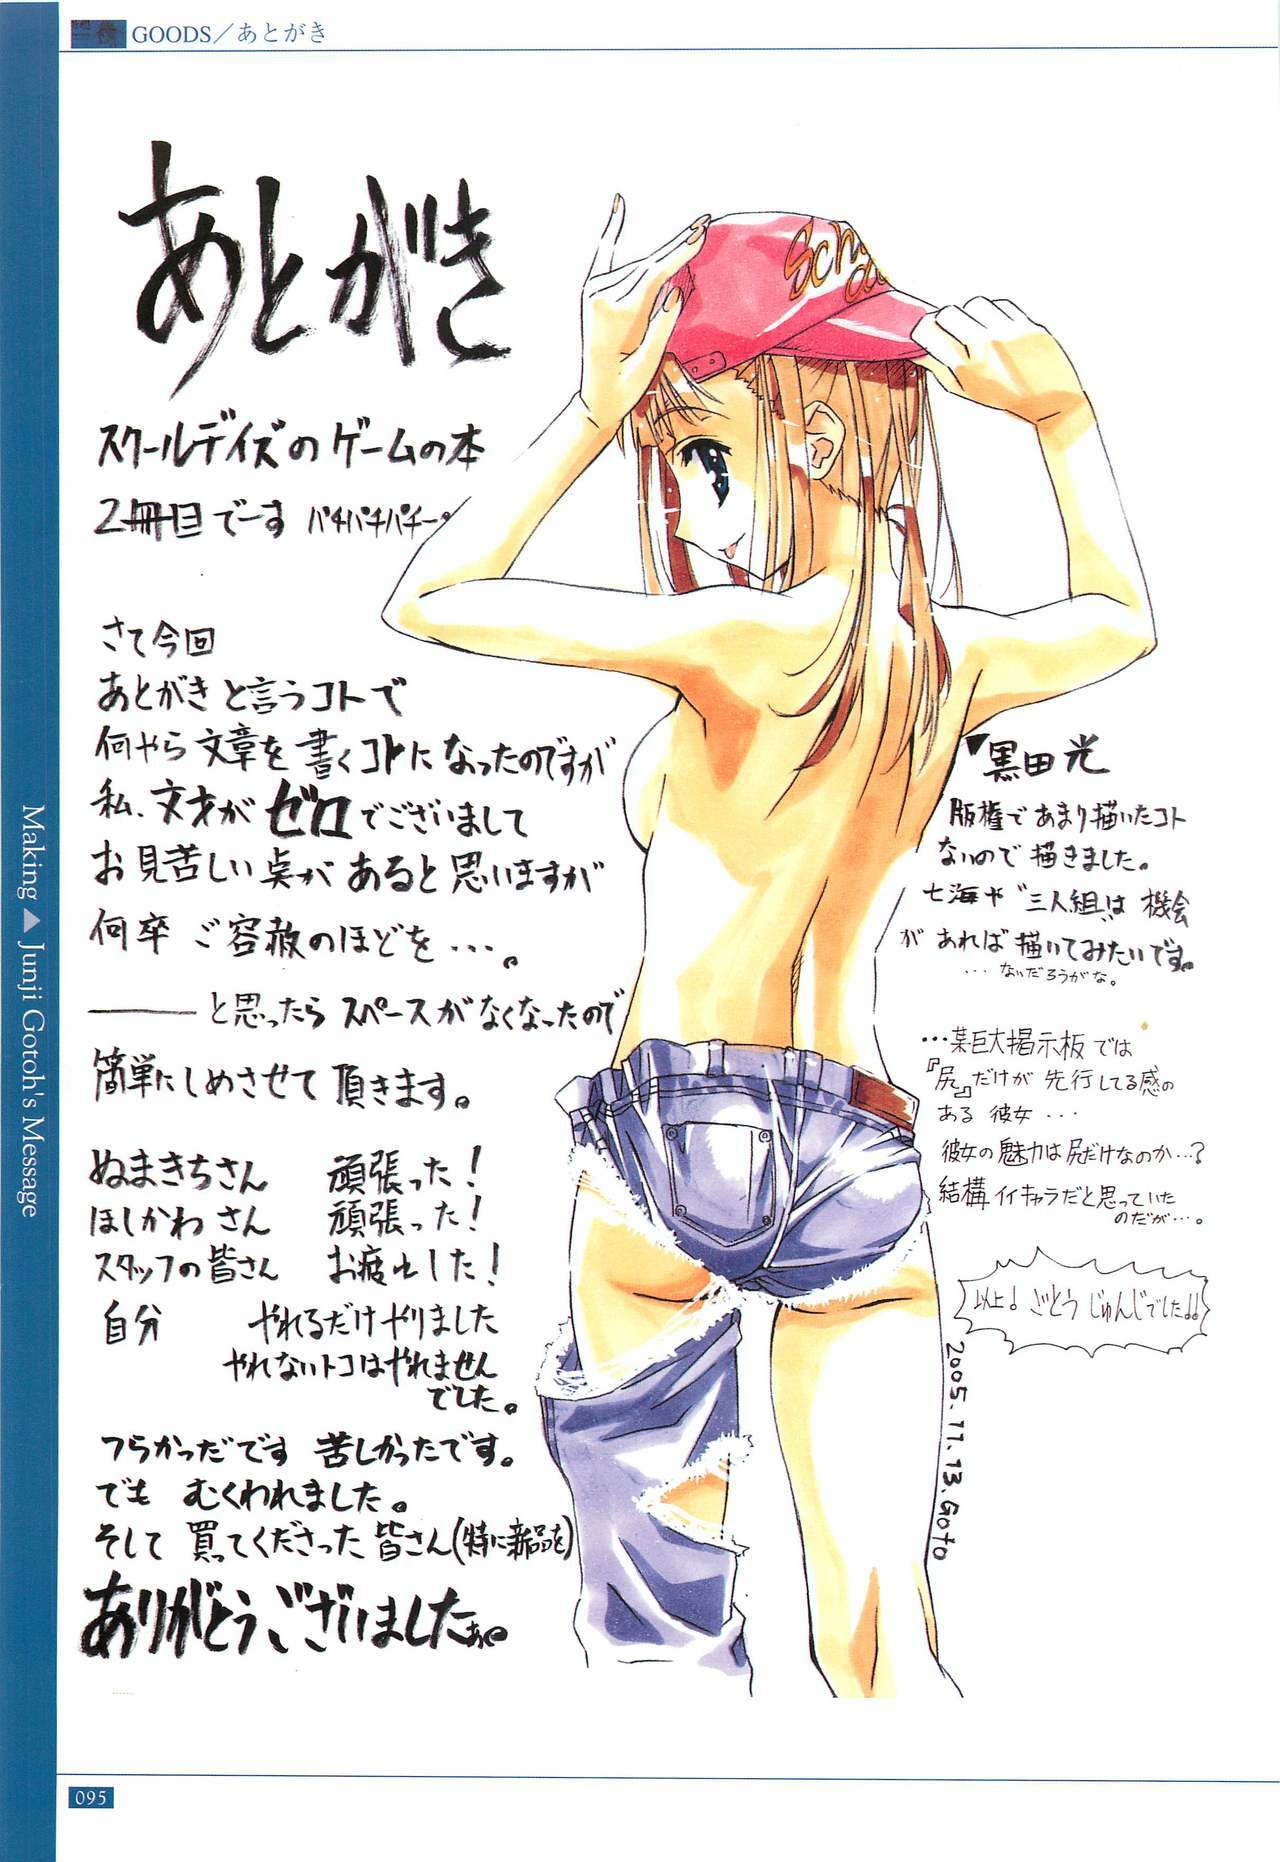 GOODS／あとがき
あとがき
スクールデイズのゲームの本
2冊目でーす パチパチパチー
さて今回
あとがきと言うコトで
何やら文章を書くコトになったのですが
私、文才がゼロでございまして
お見苦しい点があると思いますが
何卒ご容赦のほどを・・・。
――と思ったらスペースがなくなったので
簡単にしめさせて頂きます。
ぬまきちさん 頑張った！
ほしかわさん 頑張った！
スタッフの皆さん お疲れした！
自分 やれるだけやりました
やれないトコはやれません
でした。
つらかっだです 苦しかったです。
でも むくわれました。
そして 買ってくださった皆さん(特に新品を)
ありがとうございましたぁ。
黒田光
版権であまり描いたコト
ないので描きました。
七海や“三人組”は機会
があれば描いてみたいです。
・・・ないだろうがな。
・・・某巨大掲示板では
『尻』だけが先行してる感の
ある彼女・・・
彼女の魅力は尻だけなのか・・・?
結構イイキャラだと思っていた
のだが・・・。
以上！ ごとうじゅんじでした!!
2005.11.13.Goto
Making ▲ Junji Gotoh's Message
095